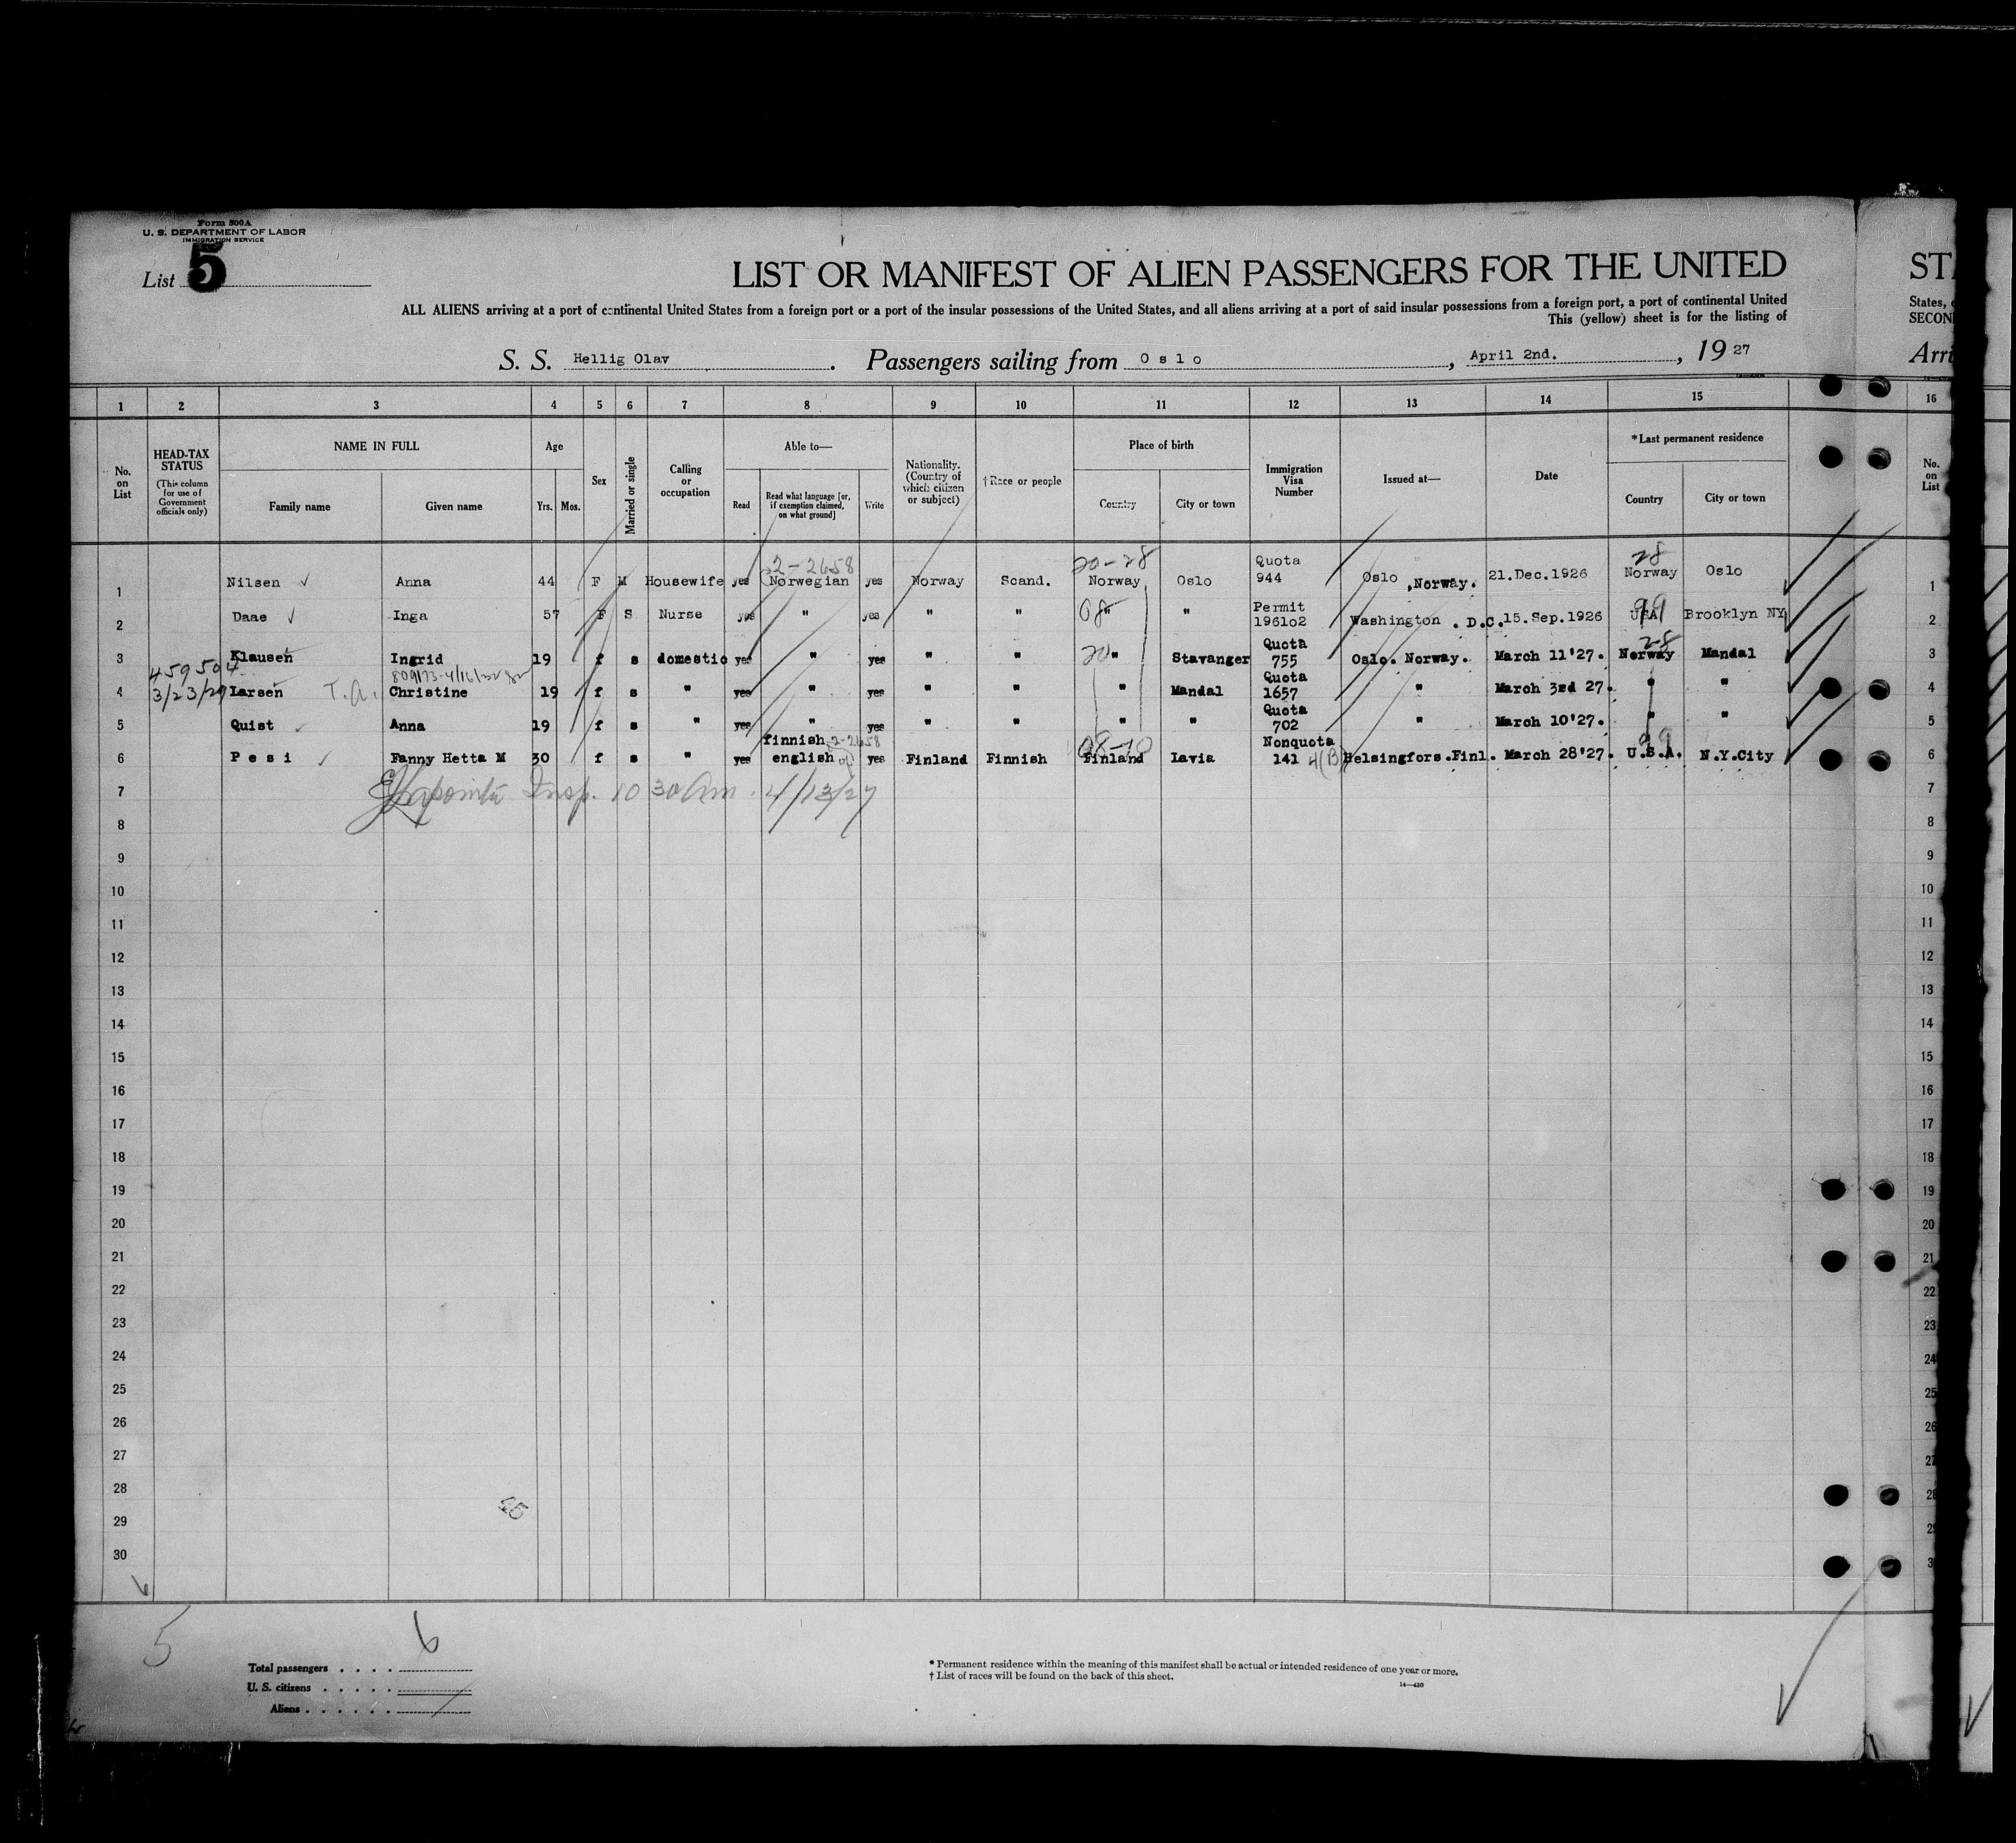 Form 500A
U. S. DEPARTMENT OF LABOR
IMMIGRATION SERVICE
List 5
LIST OR MANIFEST OF ALIEN PASSENGERS FOR THE UNITED
ST
ALL ALIENS arriving at a port of continental United States from a foreign port or a port of the insular possessions of the United States, and all aliens arriving at a port of said insular possessions from a foreign port, a port of continental United
States,
This (yellow) sheet is for the listing of
SECON
S. S. Hellig Olav . Passengers sailing from Oslo , April 2nd. , 19 27
Arri
1 2 3 4 5 6 7 8 9 10 11 12 13 14 15 16
No. on List
HEAD-TAX STATUS
(This column for use of Government officials only)
NAME IN FULL
Family name Given name
Age
Yrs. Mos.
Sex
Married or single
Calling or occupation
Able to—
Read
Read what language [or, if exemption claimed, on what ground]
Write
Nationality. (Country of which citizen or subject)
† Race or people
Place of birth
Country City or town
Immigration Visa Number
Issued at—
Date
*Last permanent residence
Country City or town
No. on List
2-2658 20-28 28
1 Nilsen ✓ Anna 44 F M Housewife yes Norwegian yes Norway Scand. Norway Oslo Quota 944 Oslo ,Norway. 21.Dec.1926 Norway Oslo 1
08 99
2 Daae ✓ Inga 57 F S Nurse yes " yes " " " " Permit 1961o2 Washington . D.C. 15.Sep.1926 USA Brooklyn NY 2
20 28
3 Klausen Ingrid 19 f s domestic yes " yes " " " Stavanger Quota 755 Oslo. Norway. March 11'27. Norway Mandal 3
459504
3/23/29
4 Larsen T.A. Christine 19 f s " yes " yes " " " Mandal Quota 1657 " March 3rd 27. " " 4
5 Quist Anna 19 f s " yes " yes " " " " Quota 702 " March 10'27. " " 5
2-2658 08-10 99
6 Pesi ✓ Fanny Hetta M 30 f s " yes finnish english yes Finland Finnish Finland Lavia Nonquota 141 4(B) Helsingfors.Finl. March 28'27. U.S.A. N.Y.City 6
7 Insp. 10 30 Am. 4/13/27 7
8 8
9 9
10 10
11 11
12 12
13 13
14 14
15 15
16 16
17 17
18 18
19 19
20 20
21 21
22 22
23 23
24 24
25 25
26 26
27 27
28 28
29 29
30 3
5
6
Total passengers . . . .
U. S. citizens . . . . .
Aliens . . . . . .
* Permanent residence within the meaning of this manifest shall be actual or intended residence of one year or more.
† List of races will be found on the back of this sheet.
14—430